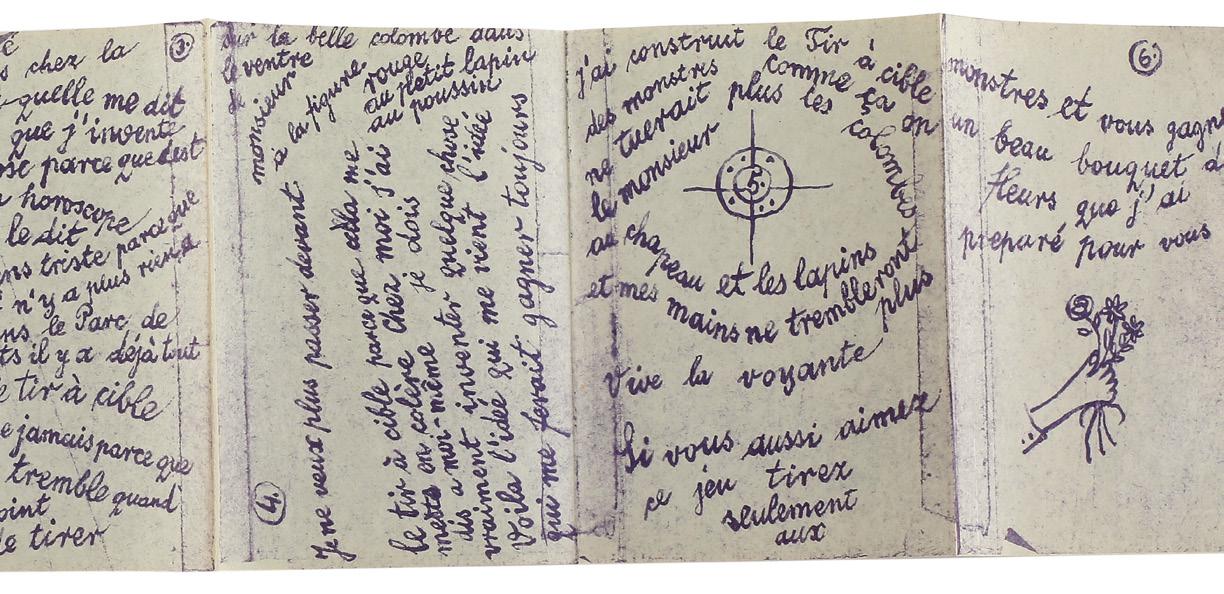 s chez la
quelle me dit
que j'invente
parce que c'est
horoscope
le dit
ns triste parceque
n'y a plus rien à
ns le Parc de
ts il y a déjà tout
e tir à cible
e jamais parce que
tremble quand
oint
de tirer
3.
sur la belle colombe dans
le ventre
du
monsieur
à la figure
rouge
au petit lapin
au poussin
Je ne veux plus passer devant
le tir à cible parce que cela me
mets en colère Chez moi j'ai
dis a moi-même je dois
vraiment inventer quelque chose
Voila l'idée qui me vient l'idée
qui me ferait gagner toujours
4.
j'ai construit le Tir à cible
des monstres comme ça on
ne tuerait plus les colombes
le monsieur
au chapeau et les lapins
et mes mains ne trembleront
plus
5.
Vive la voyante
Si vous aussi aimez
ce jeu tirez
seulement
aux
6.
monstres et vous gagn
un beau bouquet d
fleurs que j'ai
preparé pour vous